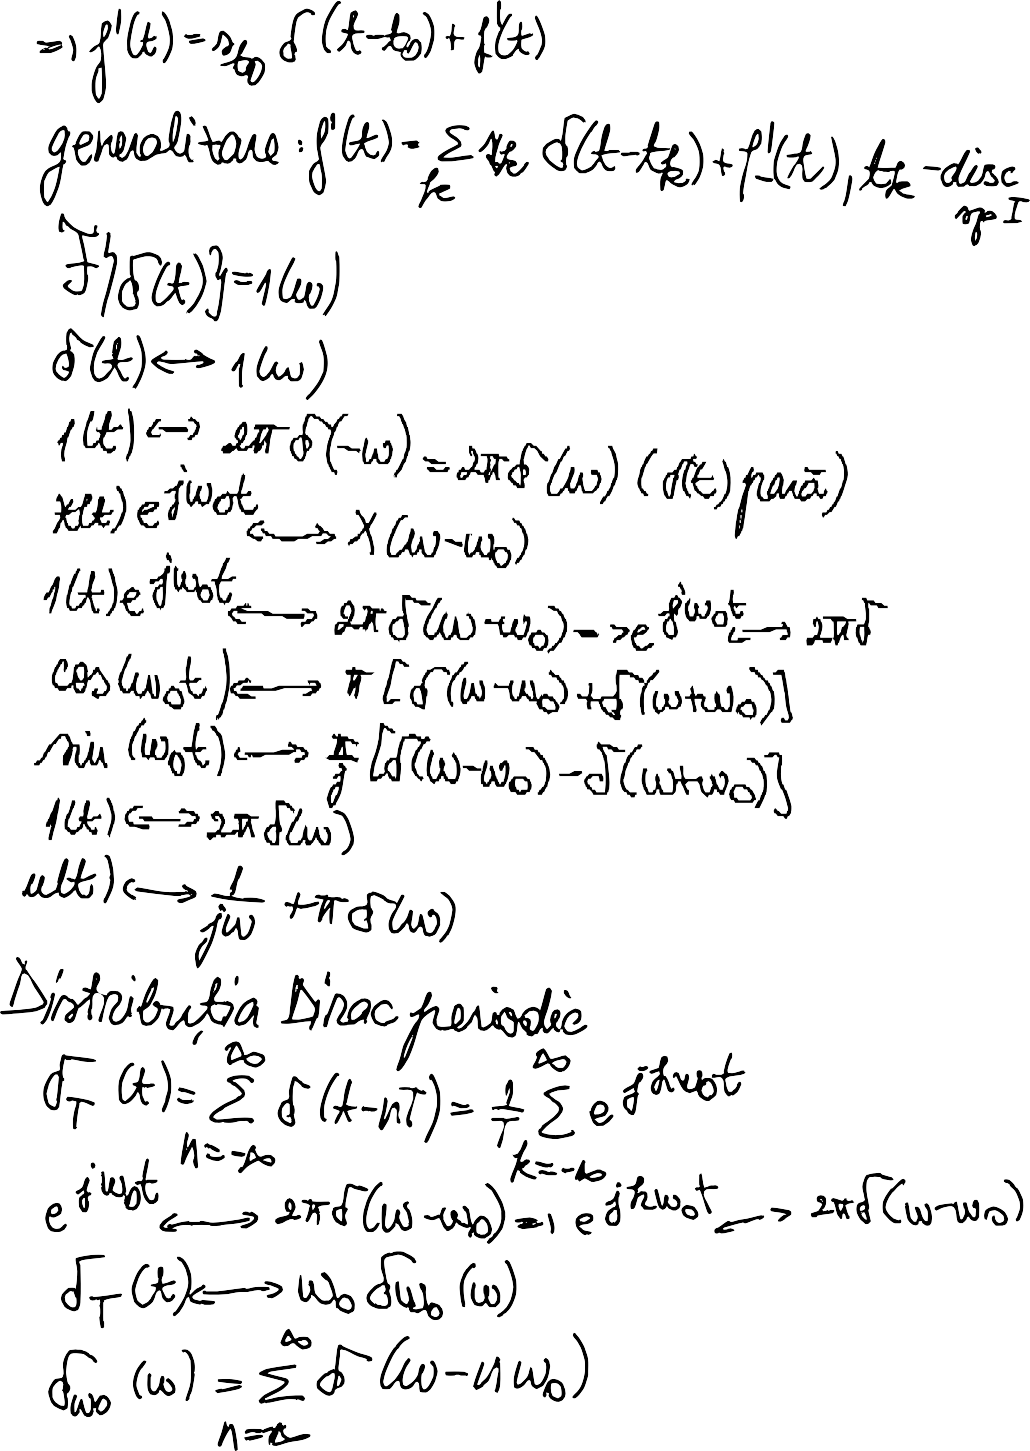 => f'(t) = s_{t_0} δ(t-t_0) + f'_(t)
generalitare : f'(t) = Σ_k s_k δ(t-t_k) + f'_(t), t_k - disc sp I
F{δ(t)} = 1(ω)
δ(t) ↔ 1(ω)
1(t) ↔ 2π δ(-ω) = 2π δ(ω) (δ(t) pară)
x(t) e^{jω_0t} ↔ X(ω-ω_0)
1(t) e^{jω_0t} ↔ 2π δ(ω-ω_0) => e^{jω_0t} ↔ 2π δ
cos(ω_0t) ↔ π [δ(ω-ω_0) + δ(ω+ω_0)]
sin(ω_0t) ↔ π/j [δ(ω-ω_0) - δ(ω+ω_0)]
1(t) ↔ 2π δ(ω)
u(t) ↔ 1/jω + π δ(ω)
Distribuția Dirac periodic
δ_T(t) = Σ_{n=-∞}^{∞} δ(t-nT) = 1/T Σ_{k=-∞}^{∞} e^{jkω_0t}
e^{jω_0t} ↔ 2π δ(ω-ω_0) => e^{jkω_0t} ↔ 2π δ(ω-ω_0)
δ_T(t) ↔ ω_0 δ_{ω_0}(ω)
δ_{ω_0}(ω) = Σ_{n=}^{∞} δ(ω-nω_0)